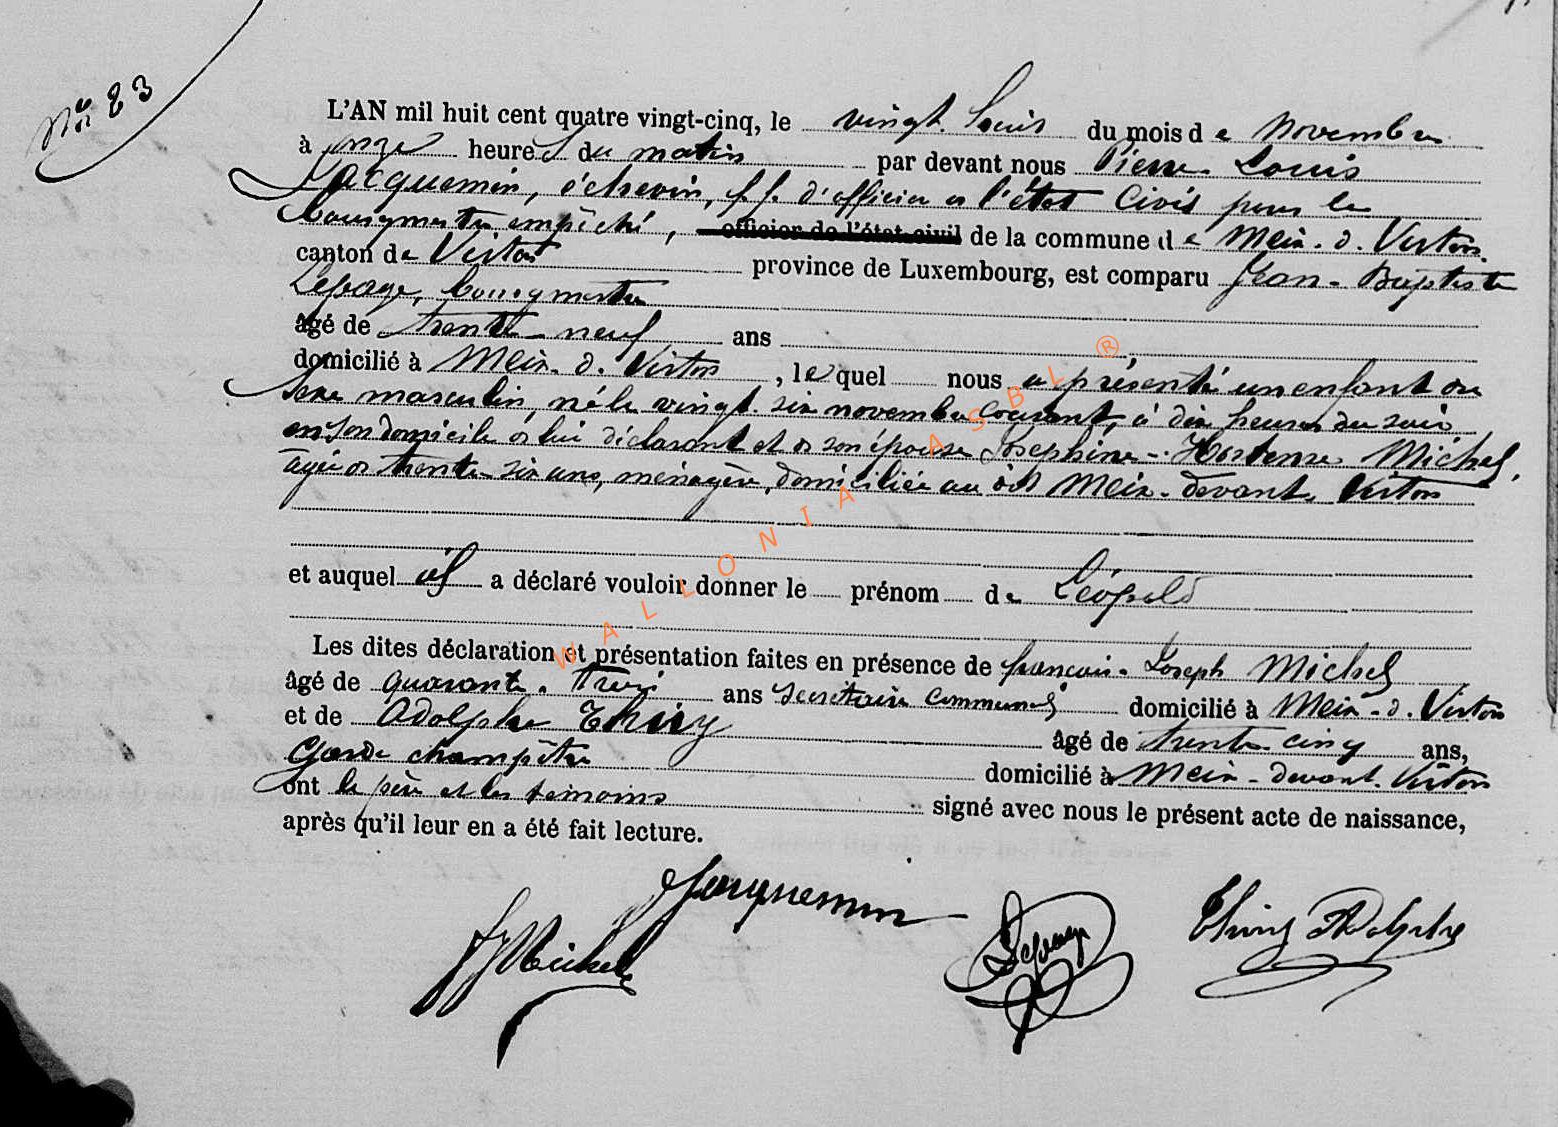 N° 23
L'AN mil huit cent quatre vingt-cinq, le vingt huit du mois de Novembre
à onze heures du matin par devant nous Pierre Louis
Jacquemin, échevin, f.f. d'officier de l'état Civil pour le
bourgmestre empêché, officier de l'état-civil de la commune de Meix-d. Virton
canton de Virton province de Luxembourg, est comparu Jean-Baptiste
Lepage, bourgmestre
âgé de trente neuf ans
domicilié à Meix-d. Virton, lequel nous a présenté un enfant du
sexe masculin, né le vingt-six novembre courant, à dix heures du soir
en son domicile de lui déclarant et de son épouse Josephine-Hortense Michel,
âgée de trente-six ans, ménagère, domiciliée au dit Meix-devant-Virton
et auquel il a déclaré vouloir donner le prénom de Léopold
Les dites déclaration et présentation faites en présence de francois-Joseph Michel
âgé de quarante-trois ans secrétaire communal domicilié à Meix-d. Virton
et de Adolphe Thiry âgé de trente-cinq ans,
Garde champêtre domicilié à Meix-devant-Virton
ont le père et les témoins signé avec nous le présent acte de naissance,
après qu'il leur en a été fait lecture.
Jacquemin
FJMichel Lepage Thiry Adolphe
WALLONIA ASBL ®